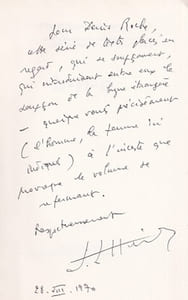 Pour Denis Roche,
cette série de textes placés en
regard, qui se supplément,
qui introduisent entre eux le
soupçon de la ligne étrangère
— quoique vous précisément
(l'homme, la femme ici
indiqués) à l'inceste que
provoque le volume se
refermant.
Respectueusement
28. VIII. 1970